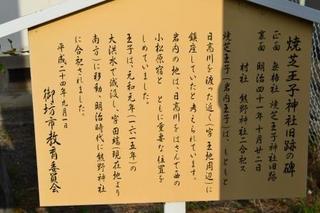 焼芝王子神社旧跡の碑
正面　無格社　焼芝王子神社旧跡
裏面　明治四十一年十月廿二日
村社　熊野神社ニ合祀ス
焼芝王子(岩内王子)は、もともと
日高川を渡った近く(字王地周辺)に
鎮座していたと考えられています。
岩内の地は、日高川をはさんで西の
小松原宿と　ともに重要な位置を
しめていました。
王子は、元和元年(一六一五年)の
大洪水で流失し、字田端(現在地より
南方)に移動、明治時代に熊野神社
に合祀されました。
平成二十四年九月一日
御坊市教育委員会